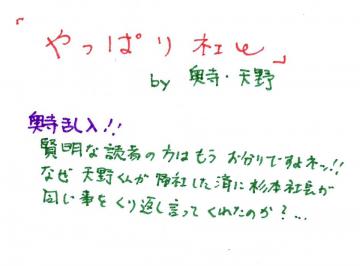 「やっぱり社e」
by 奥寺・天野
奥寺乱入!!
賢明な読者の方はもう お分りですよネッ!!
なぜ 天野くんが 降社した 済に 杉本社長が
同じ事を くり返し言って くれたのか?…